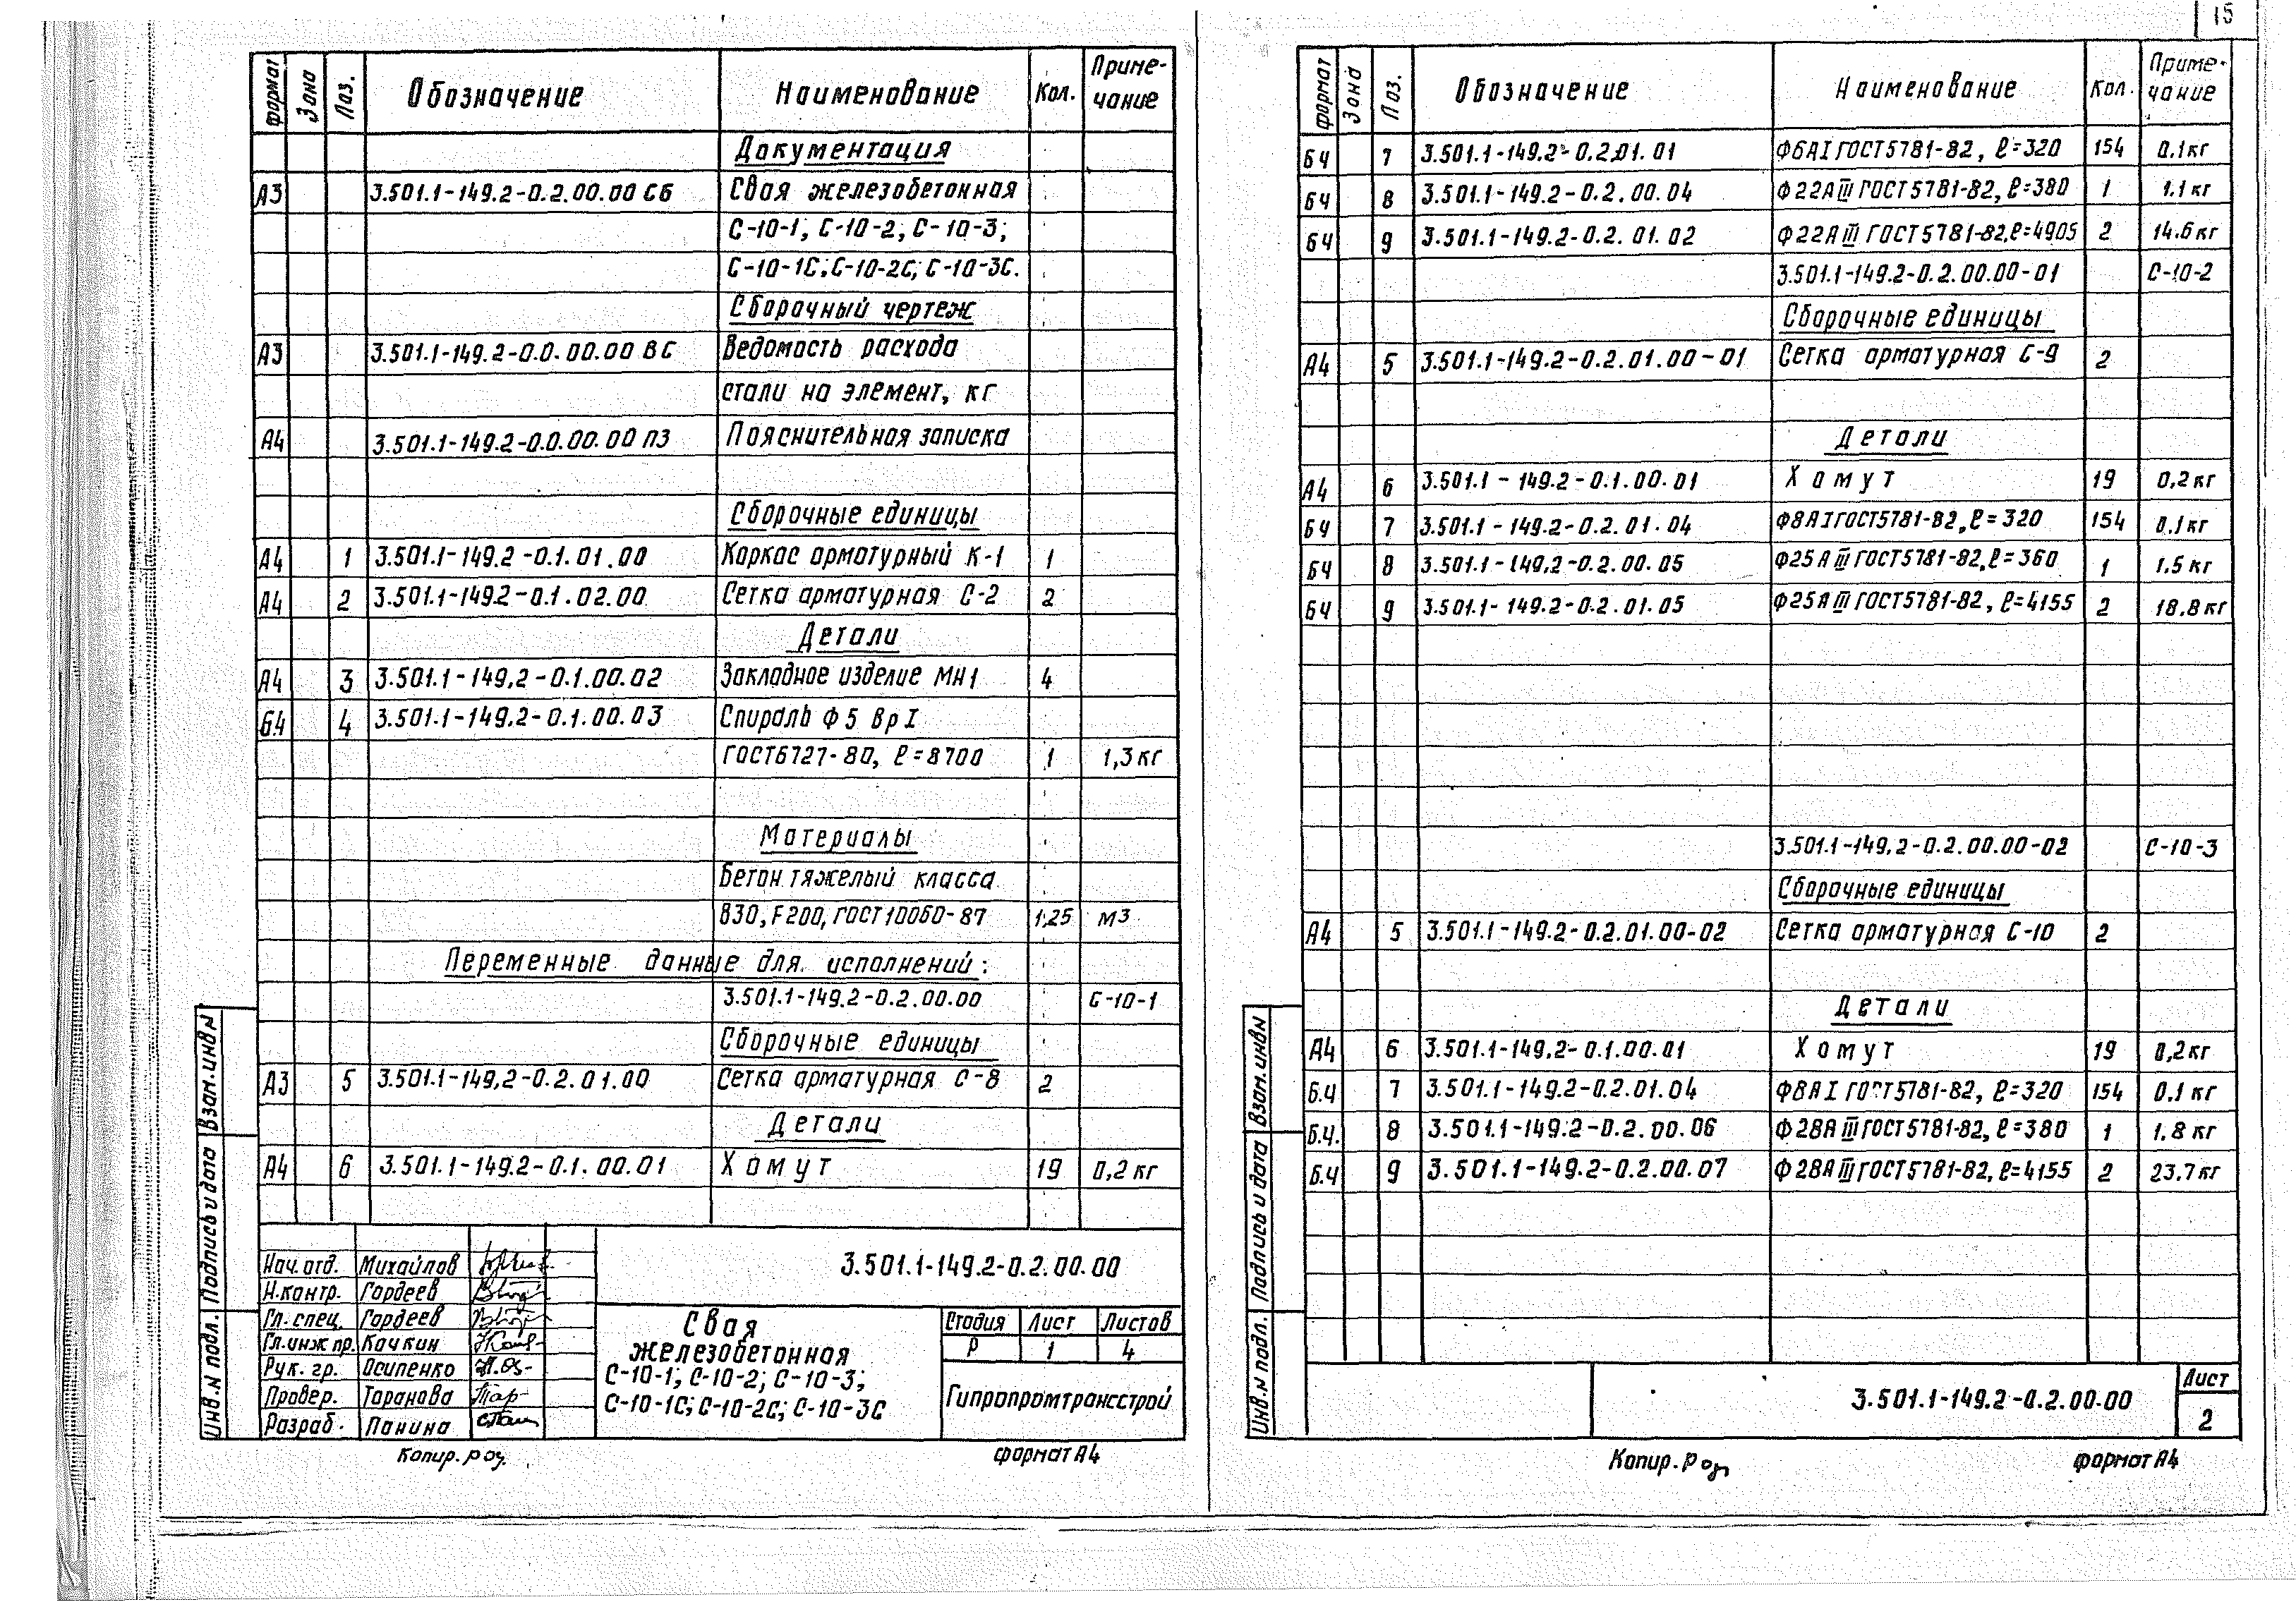 15
формат Зона Поз. Обозначение Наименование Кол. Приме-
чание
Документация
А3 3.501.1-149.2-0.2.00.00 СБ Свая железобетонная
С-10-1; С-10-2; С-10-3;
С-10-1С; С-10-2С; С-10-3С.
Сборочный чертеж
А3 3.501.1-149.2-0.0.00.00 ВС Ведомость расхода
стали на элемент, кг
А4 3.501.1-149.2-0.0.00.00 ПЗ Пояснительная записка
Сборочные единицы
А4 1 3.501.1-149.2-0.1.01.00 Каркас арматурный К-1 1
А4 2 3.501.1-149.2-0.1.02.00 Сетка арматурная С-2 2
Детали
А4 3 3.501.1-149.2-0.1.00.02 Закладное изделие МН1 4
Б4 4 3.501.1-149.2-0.1.00.03 Спираль Ф5 ВрI
ГОСТ6727-80, ℓ=8700 1 1,3 кг
Материалы
Бетон тяжелый класса
В30, F200, ГОСТ10060-87 1,25 м3
Переменные данные для исполнений:
3.501.1-149.2-0.2.00.00 С-10-1
Сборочные единицы
А3 5 3.501.1-149.2-0.2.01.00 Сетка арматурная С-8 2
Детали
А4 6 3.501.1-149.2-0.1.00.01 Хомут 19 0,2 кг
3.501.1-149.2-0.2.00.00
Нач. отд. Михайлов
Н.контр. Гордеев
Гл. спец. Гордеев
Гл.инж пр. Качкин
Рук. гр. Осипенко
Провер. Таранова
Разраб. Панина
Свая
железобетонная
С-10-1; С-10-2; С-10-3;
С-10-1С; С-10-2С; С-10-3С
Стадия Лист Листов
Р 1 4
Гипропромтрансстрой
Инв.N подл. Подпись и дата Взам.инвN
Копир. формат А4
формат Зона Поз. Обозначение Наименование Кол. Приме-
чание
БЧ 7 3.501.1-149.2-0.2.01.01 Ф6АI ГОСТ5781-82, ℓ=320 154 0.1 кг
БЧ 8 3.501.1-149.2-0.2.00.04 Ф22АIII ГОСТ5781-82, ℓ=380 1 1.1 кг
БЧ 9 3.501.1-149.2-0.2.01.02 Ф22АIII ГОСТ5781-82, ℓ=4905 2 14.6 кг
3.501.1-149.2-0.2.00.00-01 С-10-2
Сборочные единицы
А4 5 3.501.1-149.2-0.2.01.00-01 Сетка арматурная С-9 2
Детали
А4 6 3.501.1-149.2-0.1.00.01 Хомут 19 0,2 кг
БЧ 7 3.501.1-149.2-0.2.01.04 Ф8АI ГОСТ5781-82, ℓ=320 154 0.1 кг
БЧ 8 3.501.1-149.2-0.2.00.05 Ф25АIII ГОСТ5781-82, ℓ=360 1 1.5 кг
БЧ 9 3.501.1-149.2-0.2.01.05 Ф25АIII ГОСТ5781-82, ℓ=4155 2 18.8 кг
3.501.1-149.2-0.2.00.00-02 С-10-3
Сборочные единицы
А4 5 3.501.1-149.2-0.2.01.00-02 Сетка арматурная С-10 2
Детали
А4 6 3.501.1-149.2-0.1.00.01 Хомут 19 0,2 кг
Б.Ч 7 3.501.1-149.2-0.2.01.04 Ф8АI ГОСТ5781-82, ℓ=320 154 0.1 кг
Б.Ч. 8 3.501.1-149.2-0.2.00.06 Ф28АIII ГОСТ5781-82, ℓ=380 1 1.8 кг
Б.Ч 9 3.501.1-149.2-0.2.00.07 Ф28АIII ГОСТ5781-82, ℓ=4155 2 23.7 кг
Инв.N подл. Подпись и дата Взам.инвN
3.501.1-149.2-0.2.00.00 Лист
2
Копир. формат А4